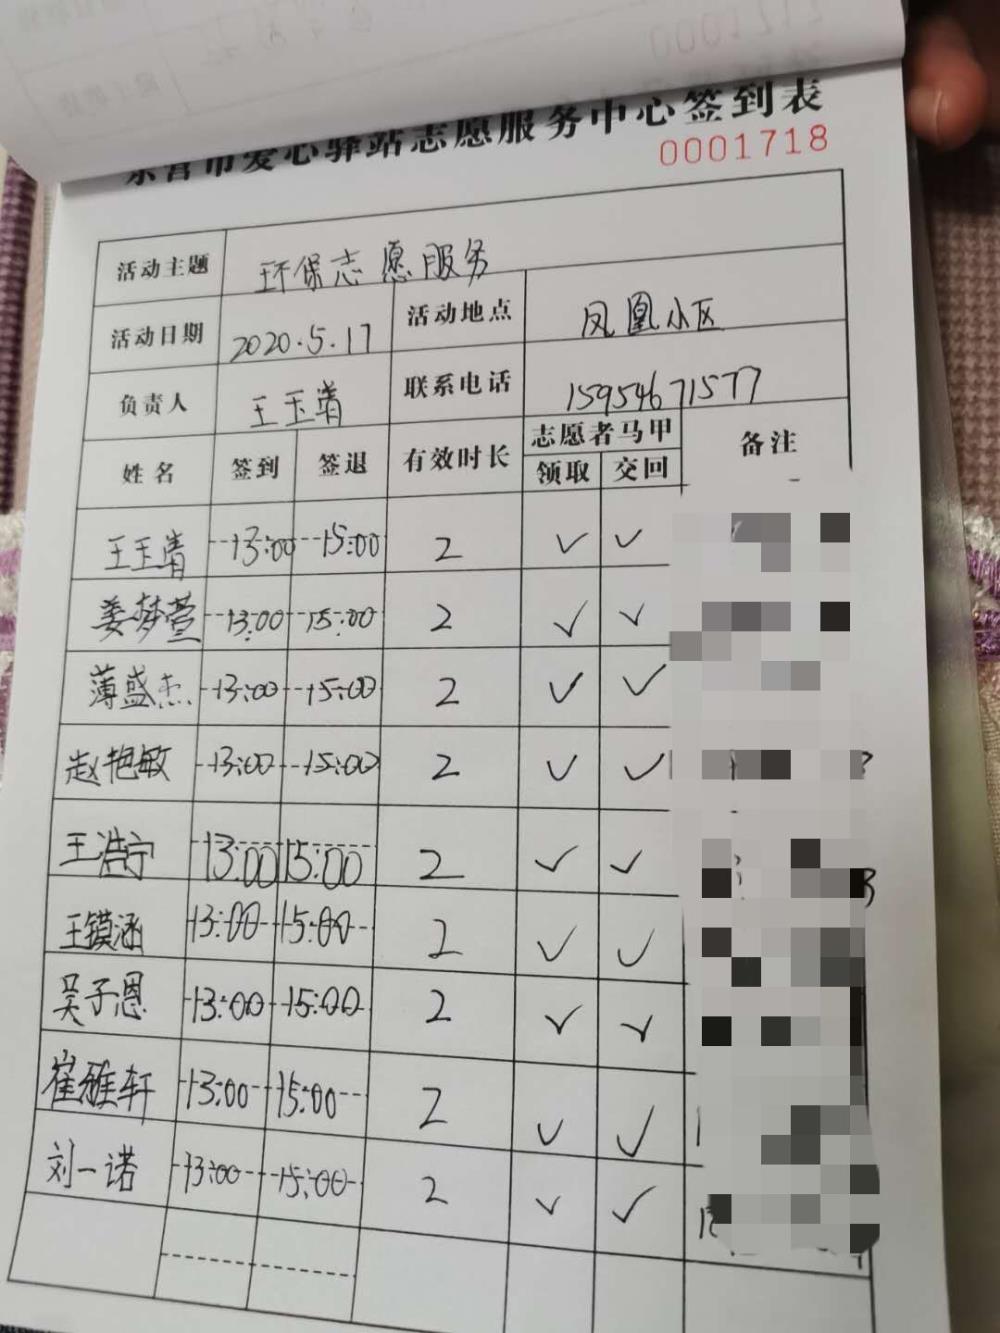 东营市爱心驿站志愿服务中心签到表
0001718
活动主题 环保志愿服务
活动日期 2020.5.17 活动地点 凤凰小区
负责人 王玉清 联系电话 15954671577
姓名 签到 签退 有效时长 志愿者马甲 备注
领取 交回
王玉清 13:00 15:00 2 ✓ ✓
姜梦萱 13:00 15:00 2 ✓ ✓
薄盛杰 13:00 15:00 2 ✓ ✓
赵艳敏 13:00 15:00 2 ✓ ✓
王浩宁 13:00 15:00 2 ✓ ✓
王镆涵 13:00 15:00 2 ✓ ✓
吴子恩 13:00 15:00 2 ✓ ✓
崔雅轩 13:00 15:00 2 ✓ ✓
刘一诺 13:00 15:00 2 ✓ ✓